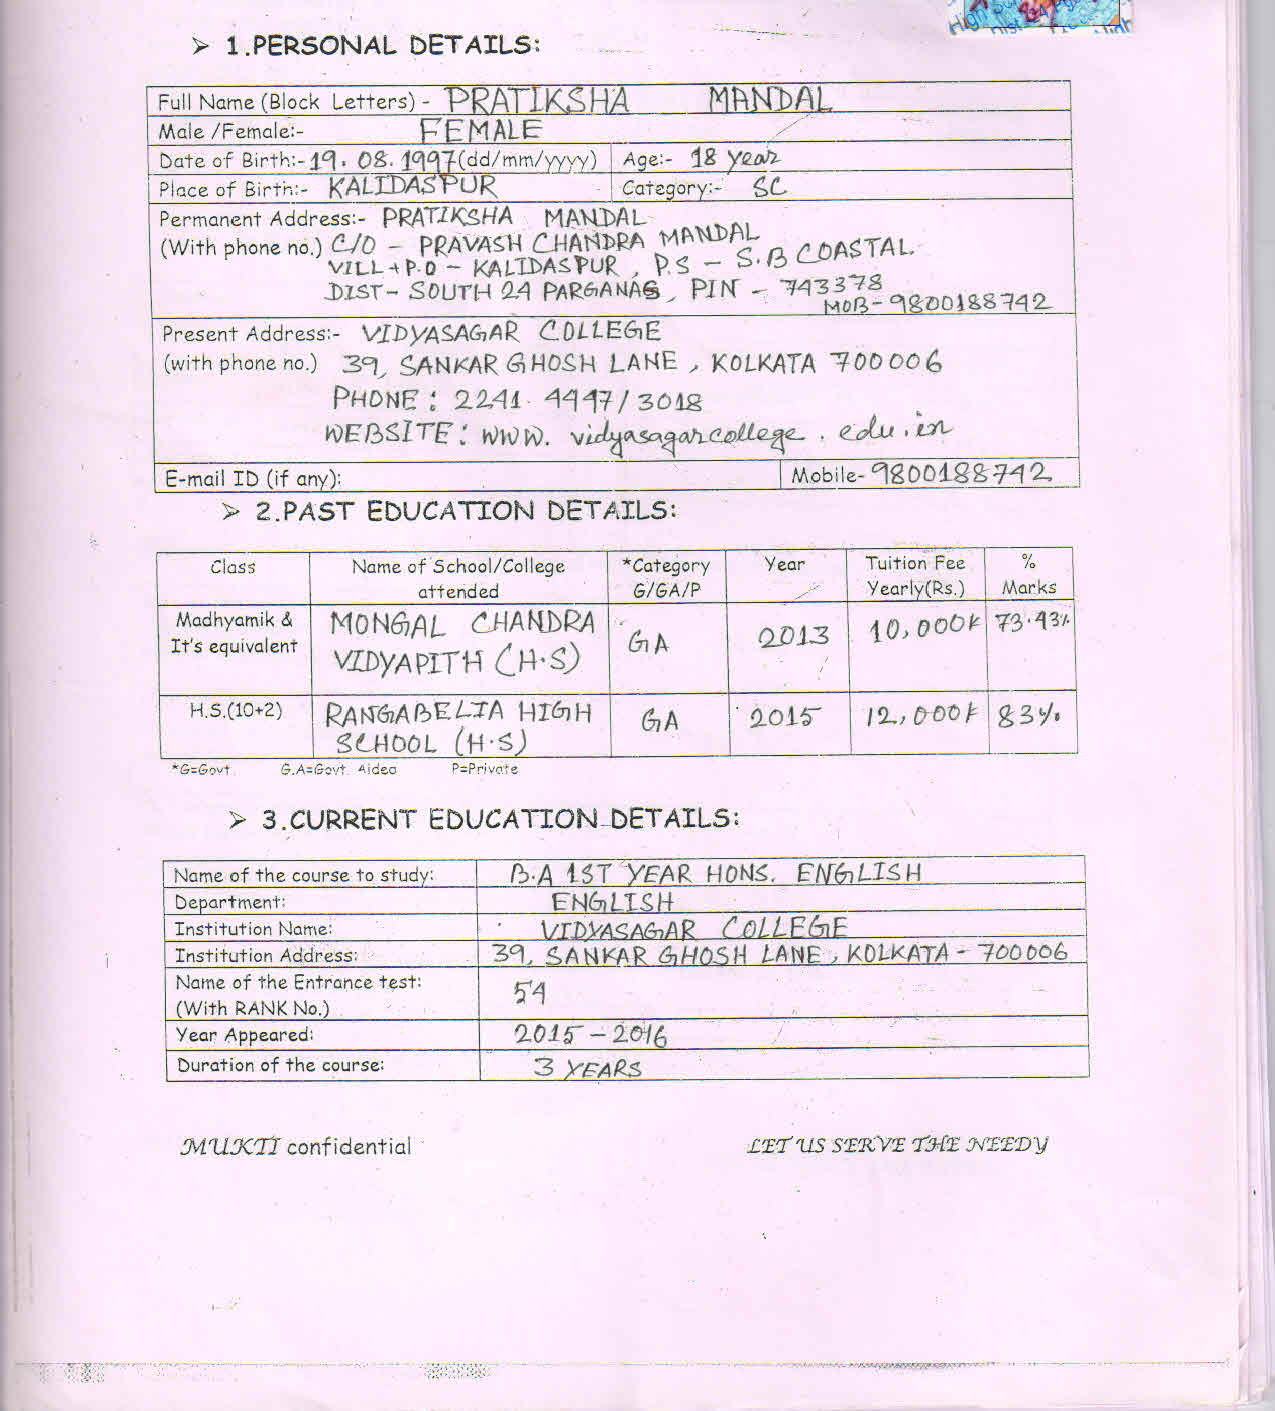 ➢ 1.PERSONAL DETAILS:
Full Name (Block Letters) - PRATIKSHA MANDAL
Male /Female:- FEMALE
Date of Birth:- 19. 08. 1997 (dd/mm/yyyy) Age:- 18 year
Place of Birth:- KALIDASPUR Category:- SC
Permanent Address:- PRATIKSHA MANDAL
(With phone no.) C/O - PRAVASH CHANDRA MANDAL
VILL + P.O - KALIDASPUR, P.S - S.B COASTAL.
DIST- SOUTH 24 PARGANAS, PIN - 743378
MOB- 9800188742
Present Address:- VIDYASAGAR COLLEGE
(with phone no.) 39, SANKAR GHOSH LANE, KOLKATA 700006
PHONE: 2241 4447/3018
WEBSITE: WWW. vidyasagarcollege.edu.in
E-mail ID (if any): Mobile- 9800188742
➢ 2.PAST EDUCATION DETAILS:
Class Name of School/College *Category Year Tuition Fee %
attended G/GA/P Yearly(Rs.) Marks
Madhyamik & MONGAL CHANDRA GA 2013 10,000/- 73.43%
It's equivalent VIDYAPITH (H.S)
H.S.(10+2) RANGABELIA HIGH GA 2015 12,000/- 83%
SCHOOL (H.S)
*G=Govt. G.A=Govt. Aided P=Private
➢ 3.CURRENT EDUCATION DETAILS:
Name of the course to study: B.A 1ST YEAR HONS. ENGLISH
Department: ENGLISH
Institution Name: VIDYASAGAR COLLEGE
Institution Address: 39, SANKAR GHOSH LANE, KOLKATA - 700006
Name of the Entrance test: 54
(With RANK No.)
Year Appeared: 2015 - 2016
Duration of the course: 3 YEARS
MUKTI confidential LET US SERVE THE NEEDY